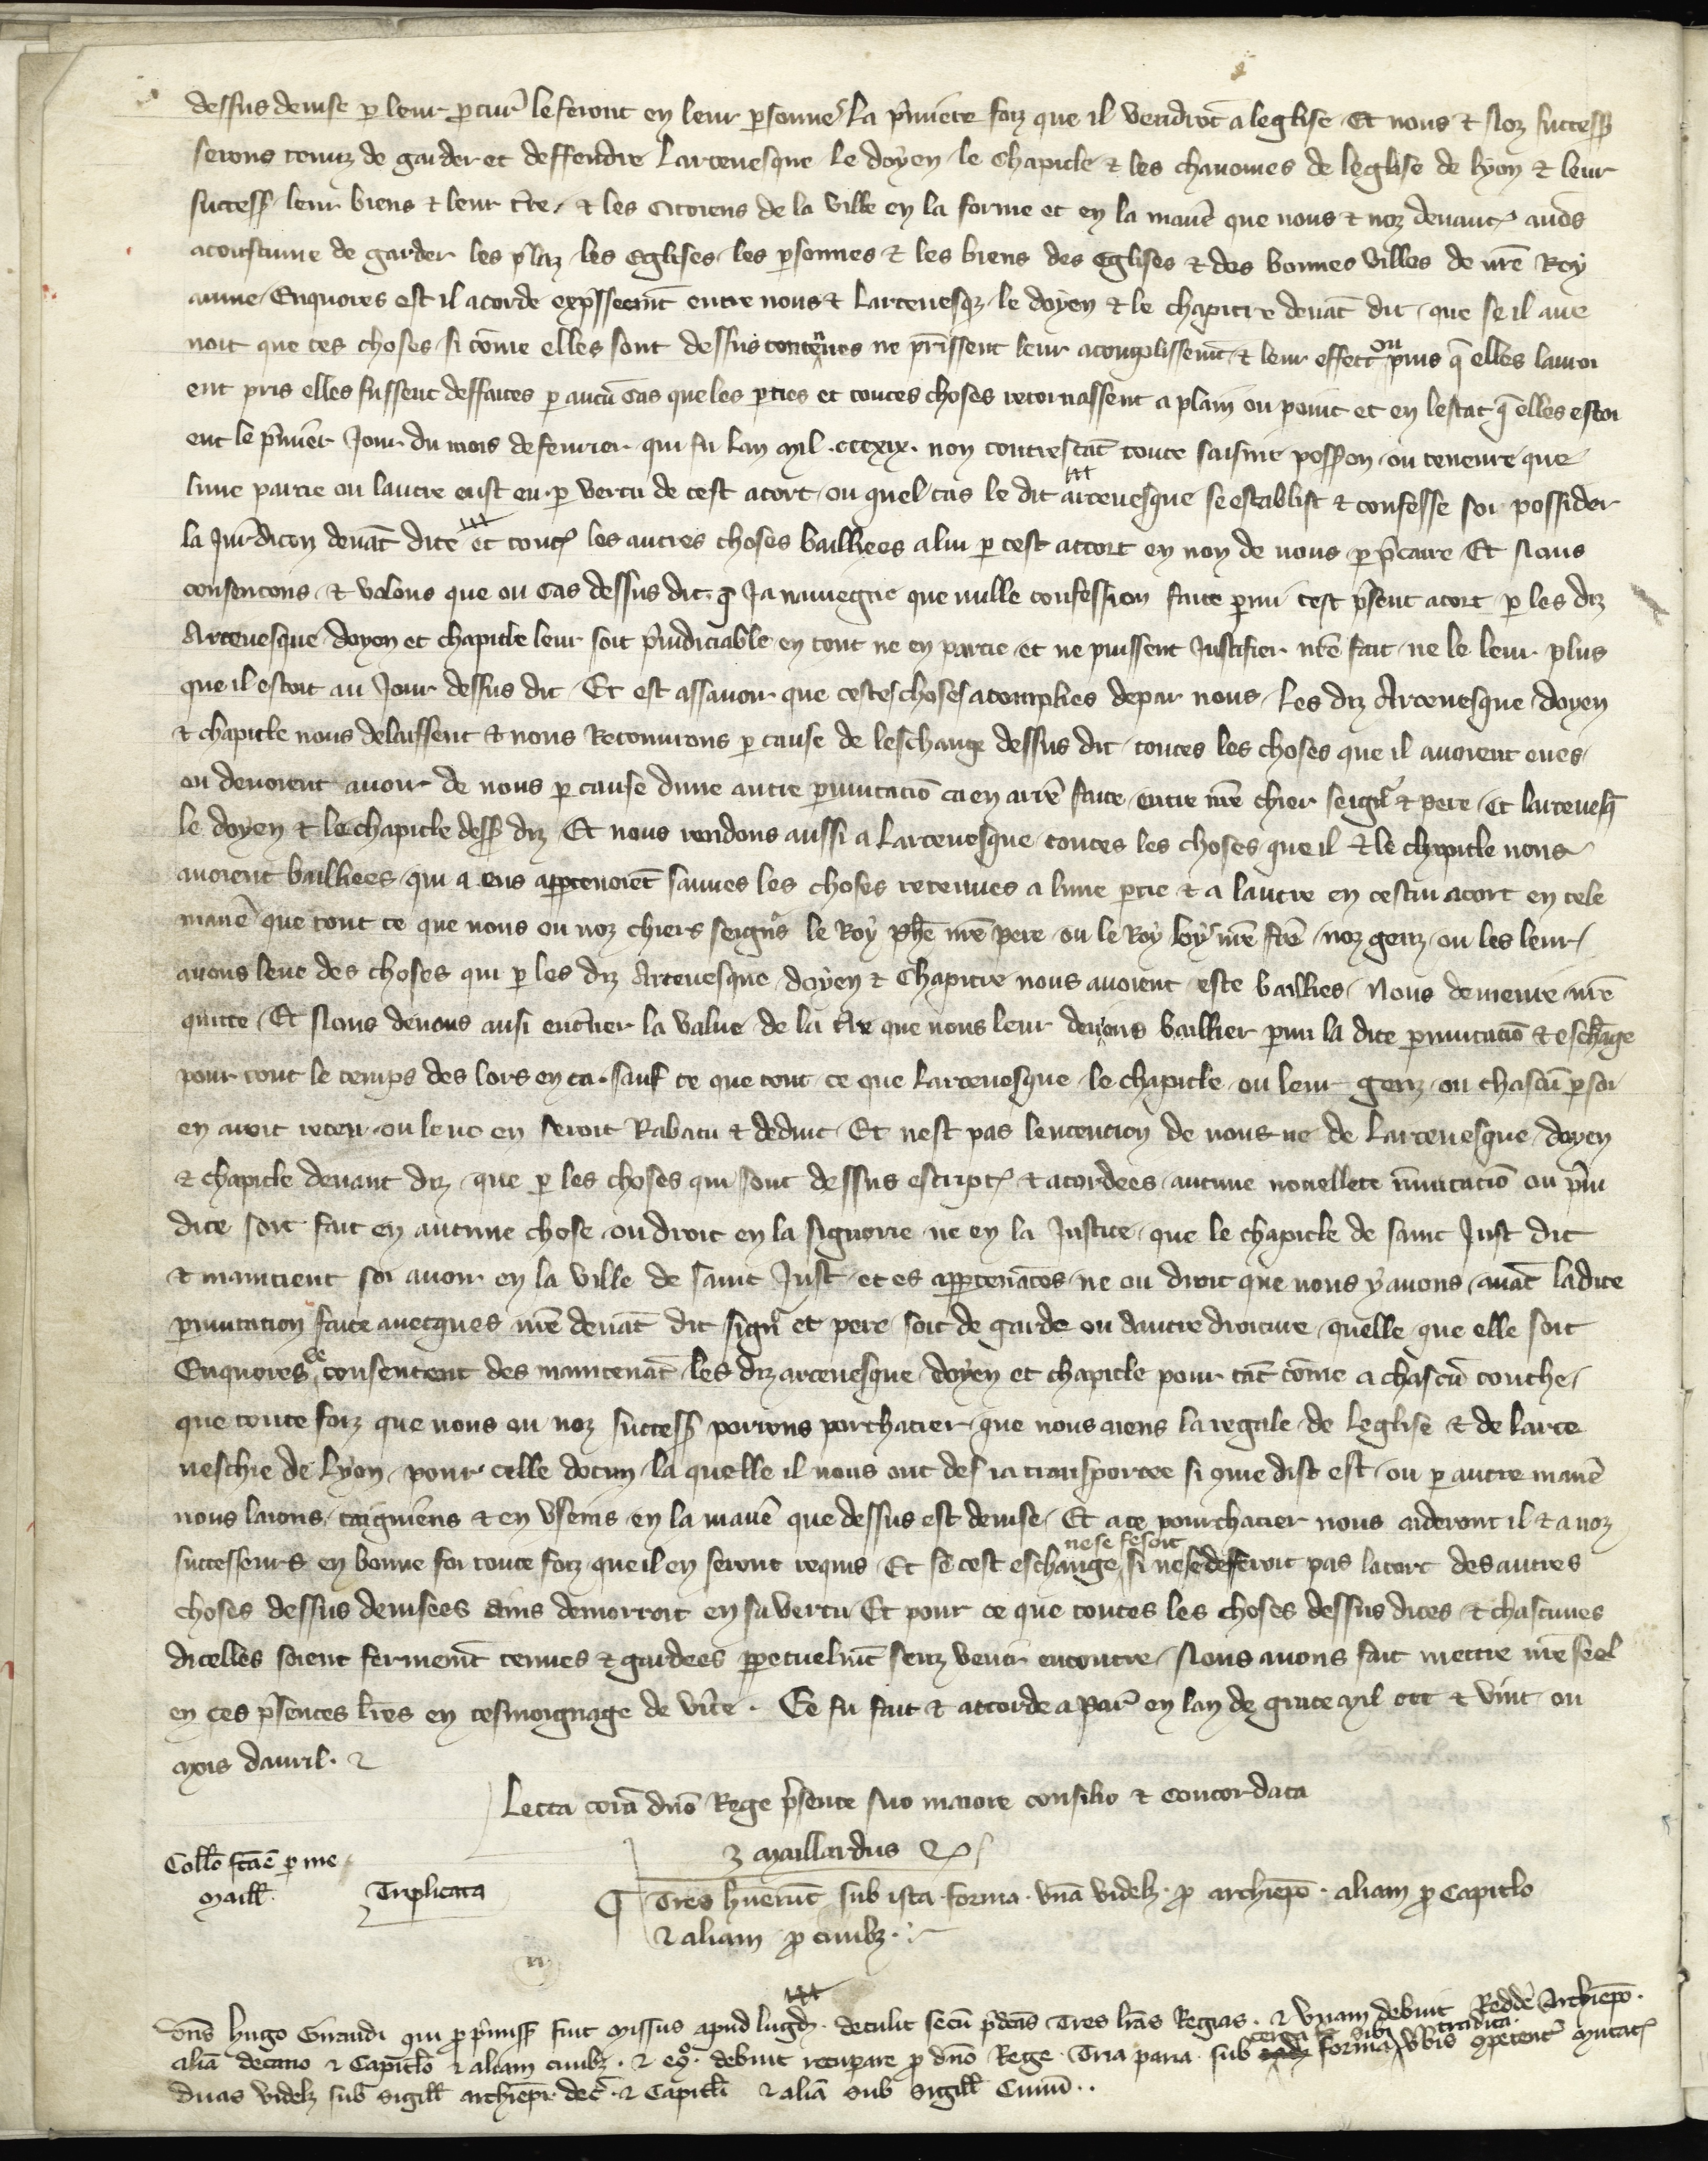 dessus devise p leur pcur̃ le feront en leur psonne la p̃miere foiz que il vendrõt a leglise Et nous & Noz success̃
serons tenuz de garder et deffendre Larcevesque le doyen le Chapitle & les chanoines de leglise de lyon & leur
success̃ leur biens & leur tr̃e & les citoiens de la ville en la forme et en la maniẽ que nous & noz devanc̃ avõs
acoustume de garder les p̃laz les eglises les psonnes & les biens des Eglises & des bonnes villes de nr̃e Roy
aume Enquores est il acorde exp̃ssemẽt entre nous & Larcevesq̃ le doyen & le chapitre devãt dit que se il ave
noit que ces choses si cõme elles sont dessus contenues ne p̃issent leur acomplissemẽt & leur effect ou puis q̃ elles lavoi
ent pris elles fussent deffaites p aucũ cas que les pties et toutes choses retornassent a plain ou point et en lestat q̃ elles estoi
ent le p̃mier Jour du mois de fevrier qui fu lan mil .cccxix. non contrestãt toute saisine possion ou teneure que
lune partie ou lautre eust eu p vertu de cest acort ou quel cas le dit arcevesque se establist & confesse soi possider
la Jur̃dicon devãt dite et tout̃ les autres choses baillies a lui p cest accort en non de nous p p̃caire Et Nous
consentons & volons que ou cas dessus dit q̃ Ja naviegne que nulle confession faite pmi cest p̃sent acort p les diz
Arcevesque doyen et chapitle leur soit p̃iudiciable en tout ne en partie et ne puissent Justifier nr̃e fait ne le leur plus
que il estoit au Jour dessus dit Et est assavoir que cestes choses acomplies de par nous Les diz Arcevesque doyen
& chapitle nous delaissent & nous Retournons p cause de leschange dessus dit toutes les choses que il avoient eues
ou devoient avoir de nous p cause dune autre pmutaciõ ca en arr̃e faite entre nr̃e chier seign̄r & pere Et larcevesq̃
le doyen & le chapitle dess̃ diz Et nous rendons aussi a Larcevesque toutes les choses que il & le chapitle nous
avoient baillies qui a eus apptenoiẽt sauves les choses retenues a lune ptie & a lautre en cestui acort en tele
maniẽ que tout ce que nous ou noz chiers seign̄rs le Roy Phẽ nr̃e pere ou le Roy loys nr̃e fr̃e noz genz ou les leur
avons leve des choses qui p les diz Arcevesque doyen & Chapitre nous avoient este baillies Nous demeure nr̃e
quitte Et Nous devons ausi entẽrier la value de la tr̃e que nous leur devons baillier pmi la dite pmutaciõ & eschãge
pour tout le temps des lors en ca. sauf ce que tout ce que Larcevesque le chapitle ou leur genz ou chascũ p soi
en avoit receu ou leve en seroit Rabatu & deduit Et nest pas lentencion de nous ne de Larcevesque doyen
& chapitle devant diz que p les choses qui sont dessus escript̃ & acordees aucune novellete ĩmutaciõ ou p̃iu
dice soit fait en aucune chose ou droit en la signorie ne en la Justice que le chapitle de saint Just dit
& maintient soi avoir en la ville de saint Just et es apptenãces ne ou droit que nous y avons avãt la dite
pmutacion faite avecques nr̃e devãt dit sign̄r et pere soit de garde ou dautre droiture quelle que elle soit
Enquores se consentent des maintenãt les diz arcevesque doyen et chapitle pour tãt cõme a chascũ touche
que toute foiz que nous ou noz success̃ porrons porchacier que nous aiens la regale de leglise & de larce
veschie de Lyon pour celle docun la quelle il nous ont des ia transportee si q̃me dist est ou p autre maniẽ
nous laions taigniens & en usems en la maniẽ que dessus est devise Et a ce pourchacier nous aideront il & a noz
successeurs en bonne foi toute foiz que il en seront requis Et se cest eschange ne se fesoit si ne se deferoit pas lacort des autres
choses dessus devisees ains demorroit en sa vertu Et pour ce que toutes les choses dessus dites & chascunes
dicelles soient fermemẽt tenues & gardees ppetuelmẽt senz venir encontre Nous avons fait mettre nr̃e seel
en ces p̃sentes lr̃es en tesmoignage de vir̃te. Ce fu fait & accorde a Par̃ en lan de grace mil ccc & vint ou
mois davril. &
Lecta corã dño Rege p̃sente suo maiore consilio & Concordata
J Maillardus
Coll̃o fcãẽ p me
Maill̃.
Triplicata
¶ Tres hũerũt sub ista forma. unã videlz p archiepõ. aliam p Capitlo
& aliam p civibz.
Dñs hugo Giraudi qui p p̃miss̃ fuit Missus apud lugd̃. detulit secũ p̃dc̃as Tres lr̃as Regias. & Unam debuit Reddẽ Archiepõ.
aliã decano & Capit̃lo & aliam civibz. & eq̃o. debuit recuperare p dño Rege Tria paria sub certa forma sibi tradita v̄bis Opetent̃ Mutat̃
Duas videlz sub sigill̃ archiep̃i. dec̃. & Capit̃li & aliã sub sigill̃ Civiũ..